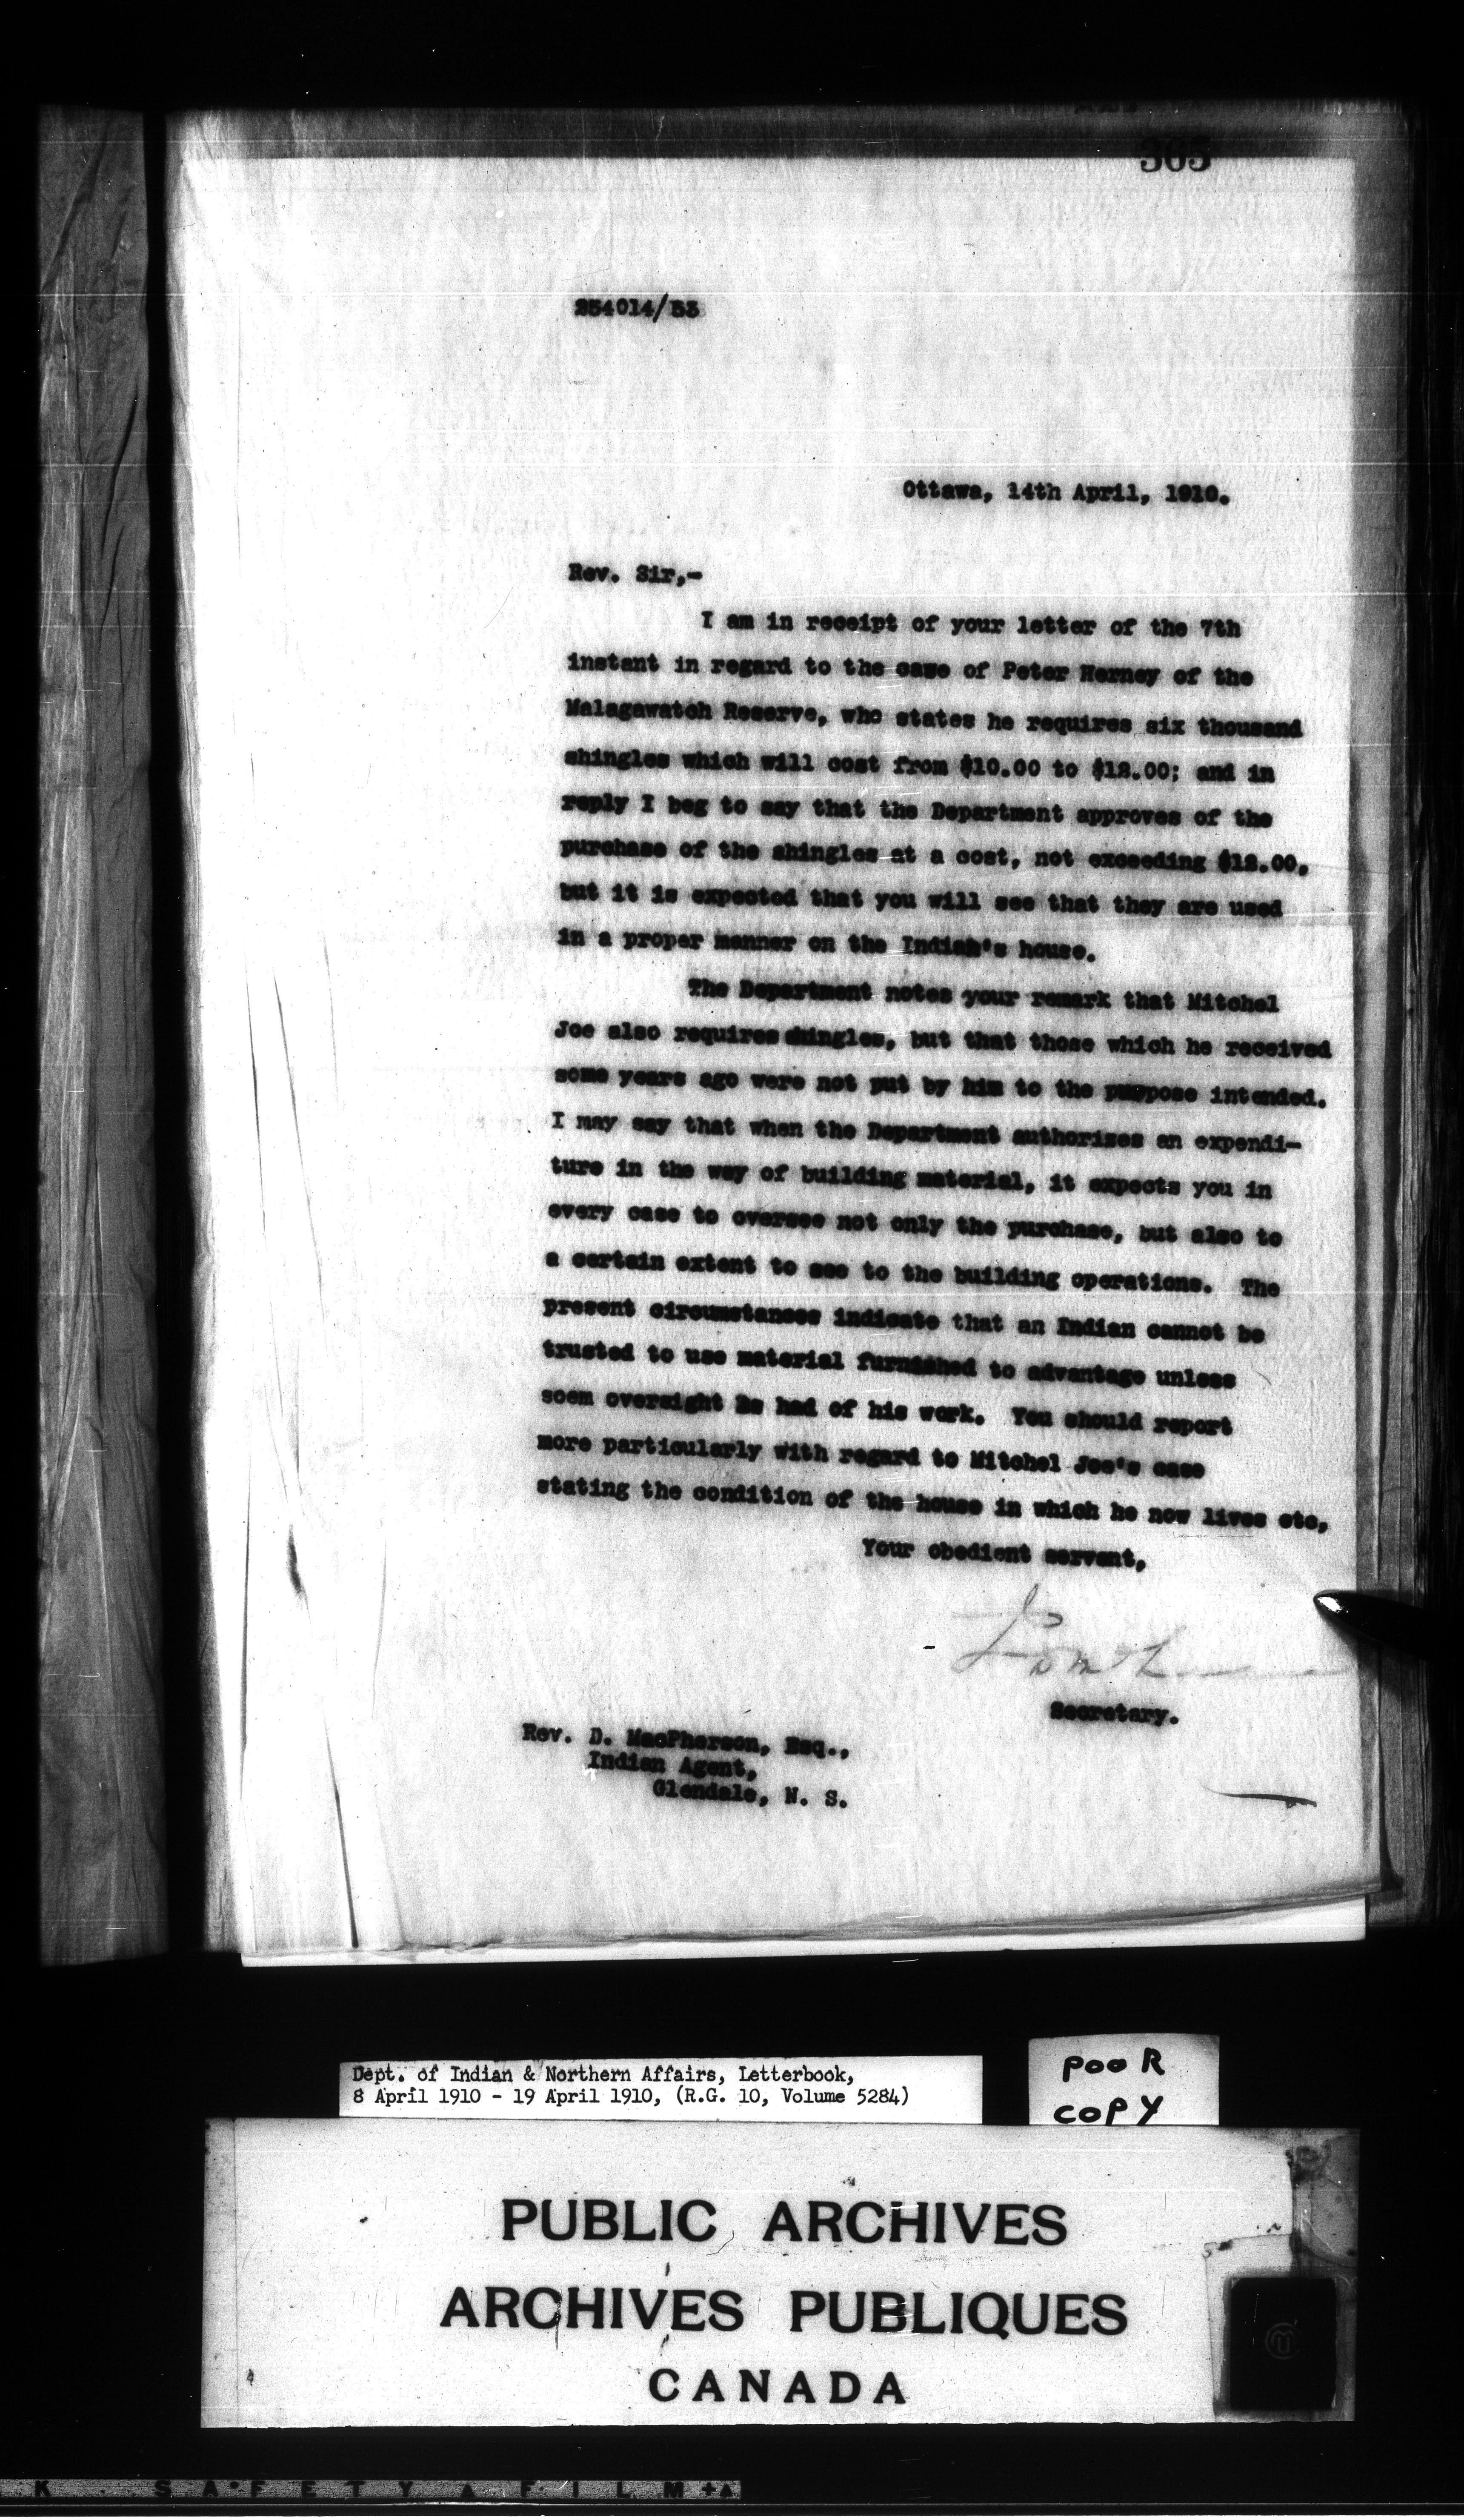 365
254014/53
Ottawa, 14th April, 1910.
Rev. Sir,-
I am in receipt of your letter of the 7th
instant in regard to the case of Peter Herney of the
Malagawatch Reserve, who states he requires six thousand
shingles which will cost from $10.00 to $12.00; and in
reply I beg to say that the Department approves of the
purchase of the shingles at a cost, not exceeding $12.00,
but it is expected that you will see that they are used
in a proper manner on the Indian's house.
The Department notes your remark that Mitchel
Joe also requires shingles, but that those which he received
some years ago were not put by him to the purpose intended.
I may say that when the Department authorizes an expendi-
ture in the way of building material, it expects you in
every case to oversee not only the purchase, but also to
a certain extent to see to the building operations. The
present circumstances indicate that an Indian cannot be
trusted to use material furnished to advantage unless
soem oversight is had of his work. You should report
more particularly with regard to Mitchel Joe's case
stating the condition of the house in which he now lives etc,
Your obedient servant,
Secretary.
Rev. D. MacPherson, Esq.,
Indian Agent,
Glendale, N. S.
Dept. of Indian & Northern Affairs, Letterbook,
8 April 1910 - 19 April 1910, (R.G. 10, Volume 5284)
POOR
COPY
PUBLIC ARCHIVES
ARCHIVES PUBLIQUES
CANADA
K SAFETY ▲ FILM +▲